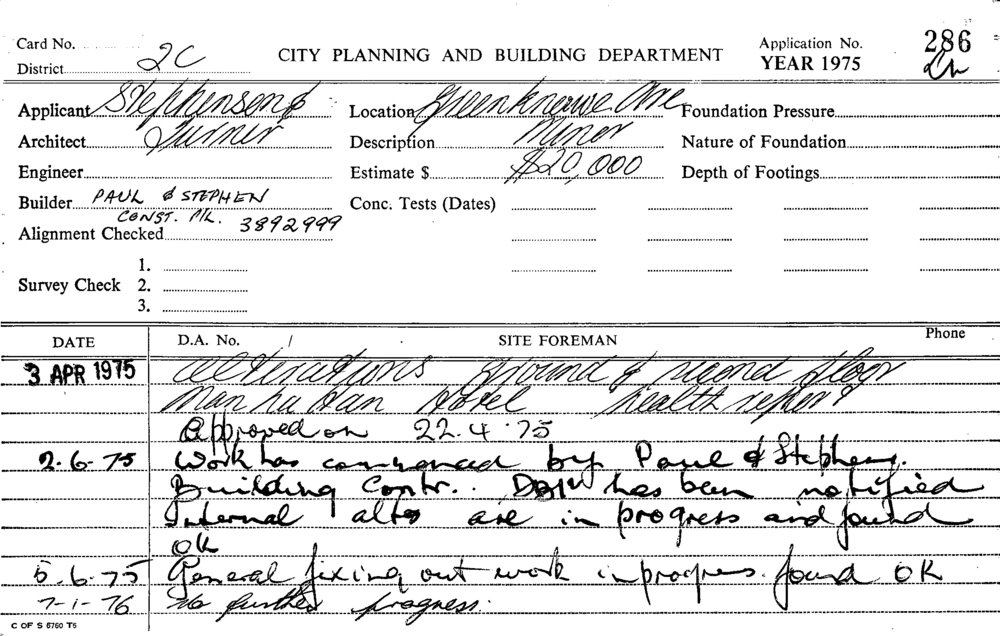 Card No. 2C
CITY PLANNING AND BUILDING DEPARTMENT
Application No. 286
District
YEAR 1975
Applicant Stephenson &
Location Greenknowe Ave
Foundation Pressure
Architect Turner
Description Minor
Nature of Foundation
Engineer
Estimate $ $20,000
Depth of Footings
Builder PAUL & STEPHEN
Conc. Tests (Dates)
CONST. P/L. 3892999
Alignment Checked
1.
Survey Check 2.
3.
DATE
D.A. No. /
SITE FOREMAN
Phone
3 APR 1975
alterations ground & second floor
Manhattan Hotel health report
Approved on 22.4.75
2.6.75 Work has commenced by Paul & Stephens.
Building Contr.. has been notified
Internal alts are in progress and found
OK
5.6.75 General fixing out work in progress. found OK
7-1-76 No further progress.
C OF S 6760 T5